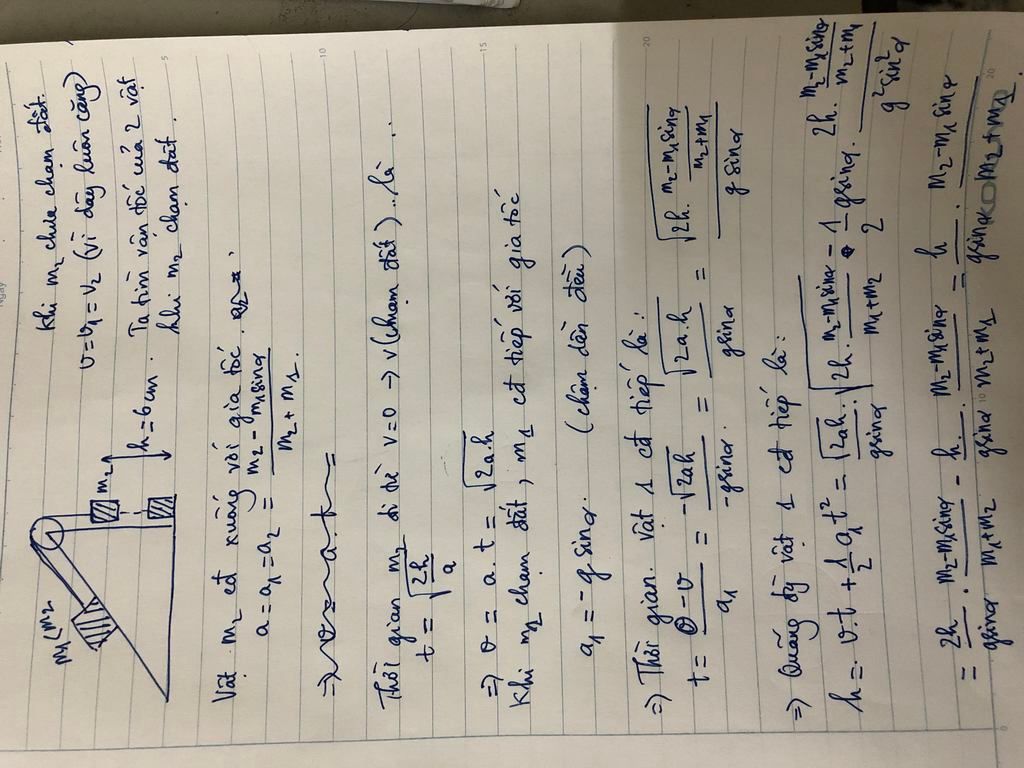 Ngày
m₁ < m₂
m₂
h = 6cm
Khi m₂ chưa chạm đất.
v = v₁ = v₂ (vì dây luôn căng)
Ta tìm vận tốc của 2 vật
khi m₂ chạm đất.
5
Vật m₂ cđ xuống với gia tốc:
a = a₁ = a₂ = (m₂ - m₁ sinα)/(m₂ + m₁).
10
=> v = a.t =
Thời gian m₂ đi từ v=0 → v (chạm đất) là
t = √(2h/a)
15
=> v = a.t = √(2ah)
Khi m₂ chạm đất, m₁ cđ tiếp với gia tốc
a₁ = -g sinα. (chậm dần đều)
20
=> Thời gian vật 1 cđ tiếp là:
t = (0-v)/a₁ = -√(2ah)/(-gsinα) = √(2a.h)/(gsinα) = √(2h.(m₂-m₁sinα)/(m₂+m₁))/(g sinα)
=> Quãng đg vật 1 cđ tiếp là:
h = v.t + 1/2 a₁t² = √(2ah).√(2h.(m₂-m₁sinα)/(m₁+m₂))/(gsinα) - 1/2 gsinα. (2h.(m₂-m₁sinα)/(m₂+m₁))/(g²sin²α)
= 2h/(gsinα) . (m₂-m₁sinα)/(m₁+m₂) - h/(gsinα) . (m₂-m₁sinα)/(m₂+m₁) = h/(gsinα) . (m₂-m₁sinα)/(m₂+m₁)